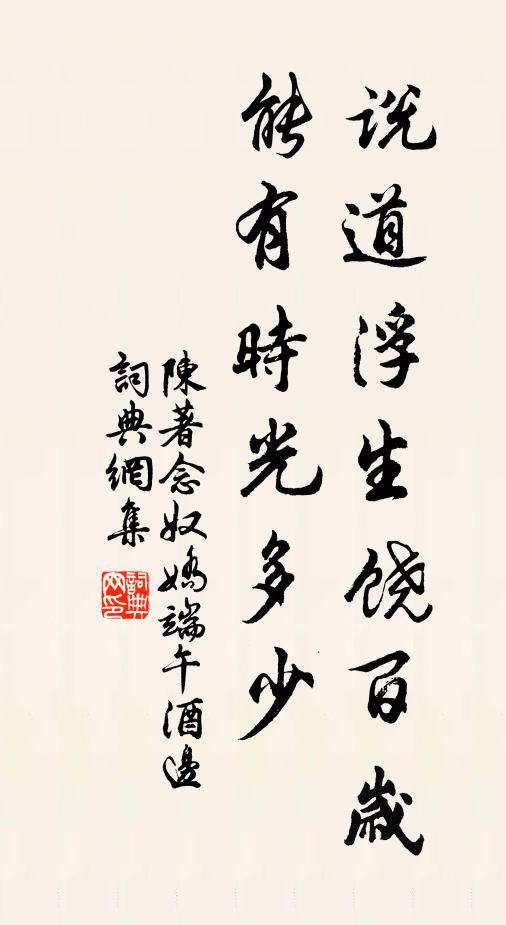 说道浮生饶百歲
能有時光多少
陳著念奴嬌端午酒邊
詞典網集
詞典网印